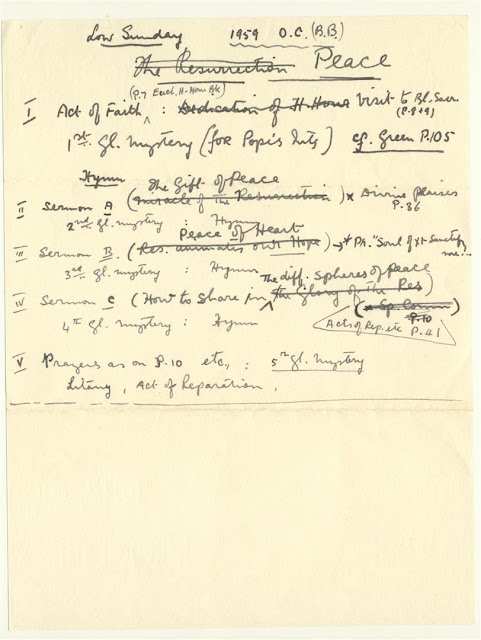 Low Sunday 1959 O.C. (B.B.)
The Resurrection Peace
(P.7 Euch. H. Hour Bk)
I Act of Faith : Dedication of H. Hour Visit to Bl. Sacr.
(P.8+9)
1st Gl. Mystery (for Pope's Ints) cf. Green P.105
Hymn The Gift of Peace
II Sermon A (miracle of the Resurrection) * Divine Praises
P.86
2nd gl. mystery : Hymn
Peace of Heart
III Sermon B. (Res. animates our Hope) → * Ph. "Soul of Xt Sanctify
me:–
3rd gl. mystery : Hymn
The diff. Spheres of Peace
IV Sermon C (How to share in the Glory of the Res)
(* Sp. Comm)
P.10
4th Gl. mystery : Hymn
Acts of Rep. etc P.41
V Prayers as on P.10 etc, : 5th gl. mystery
Litany, Act of Reparation,